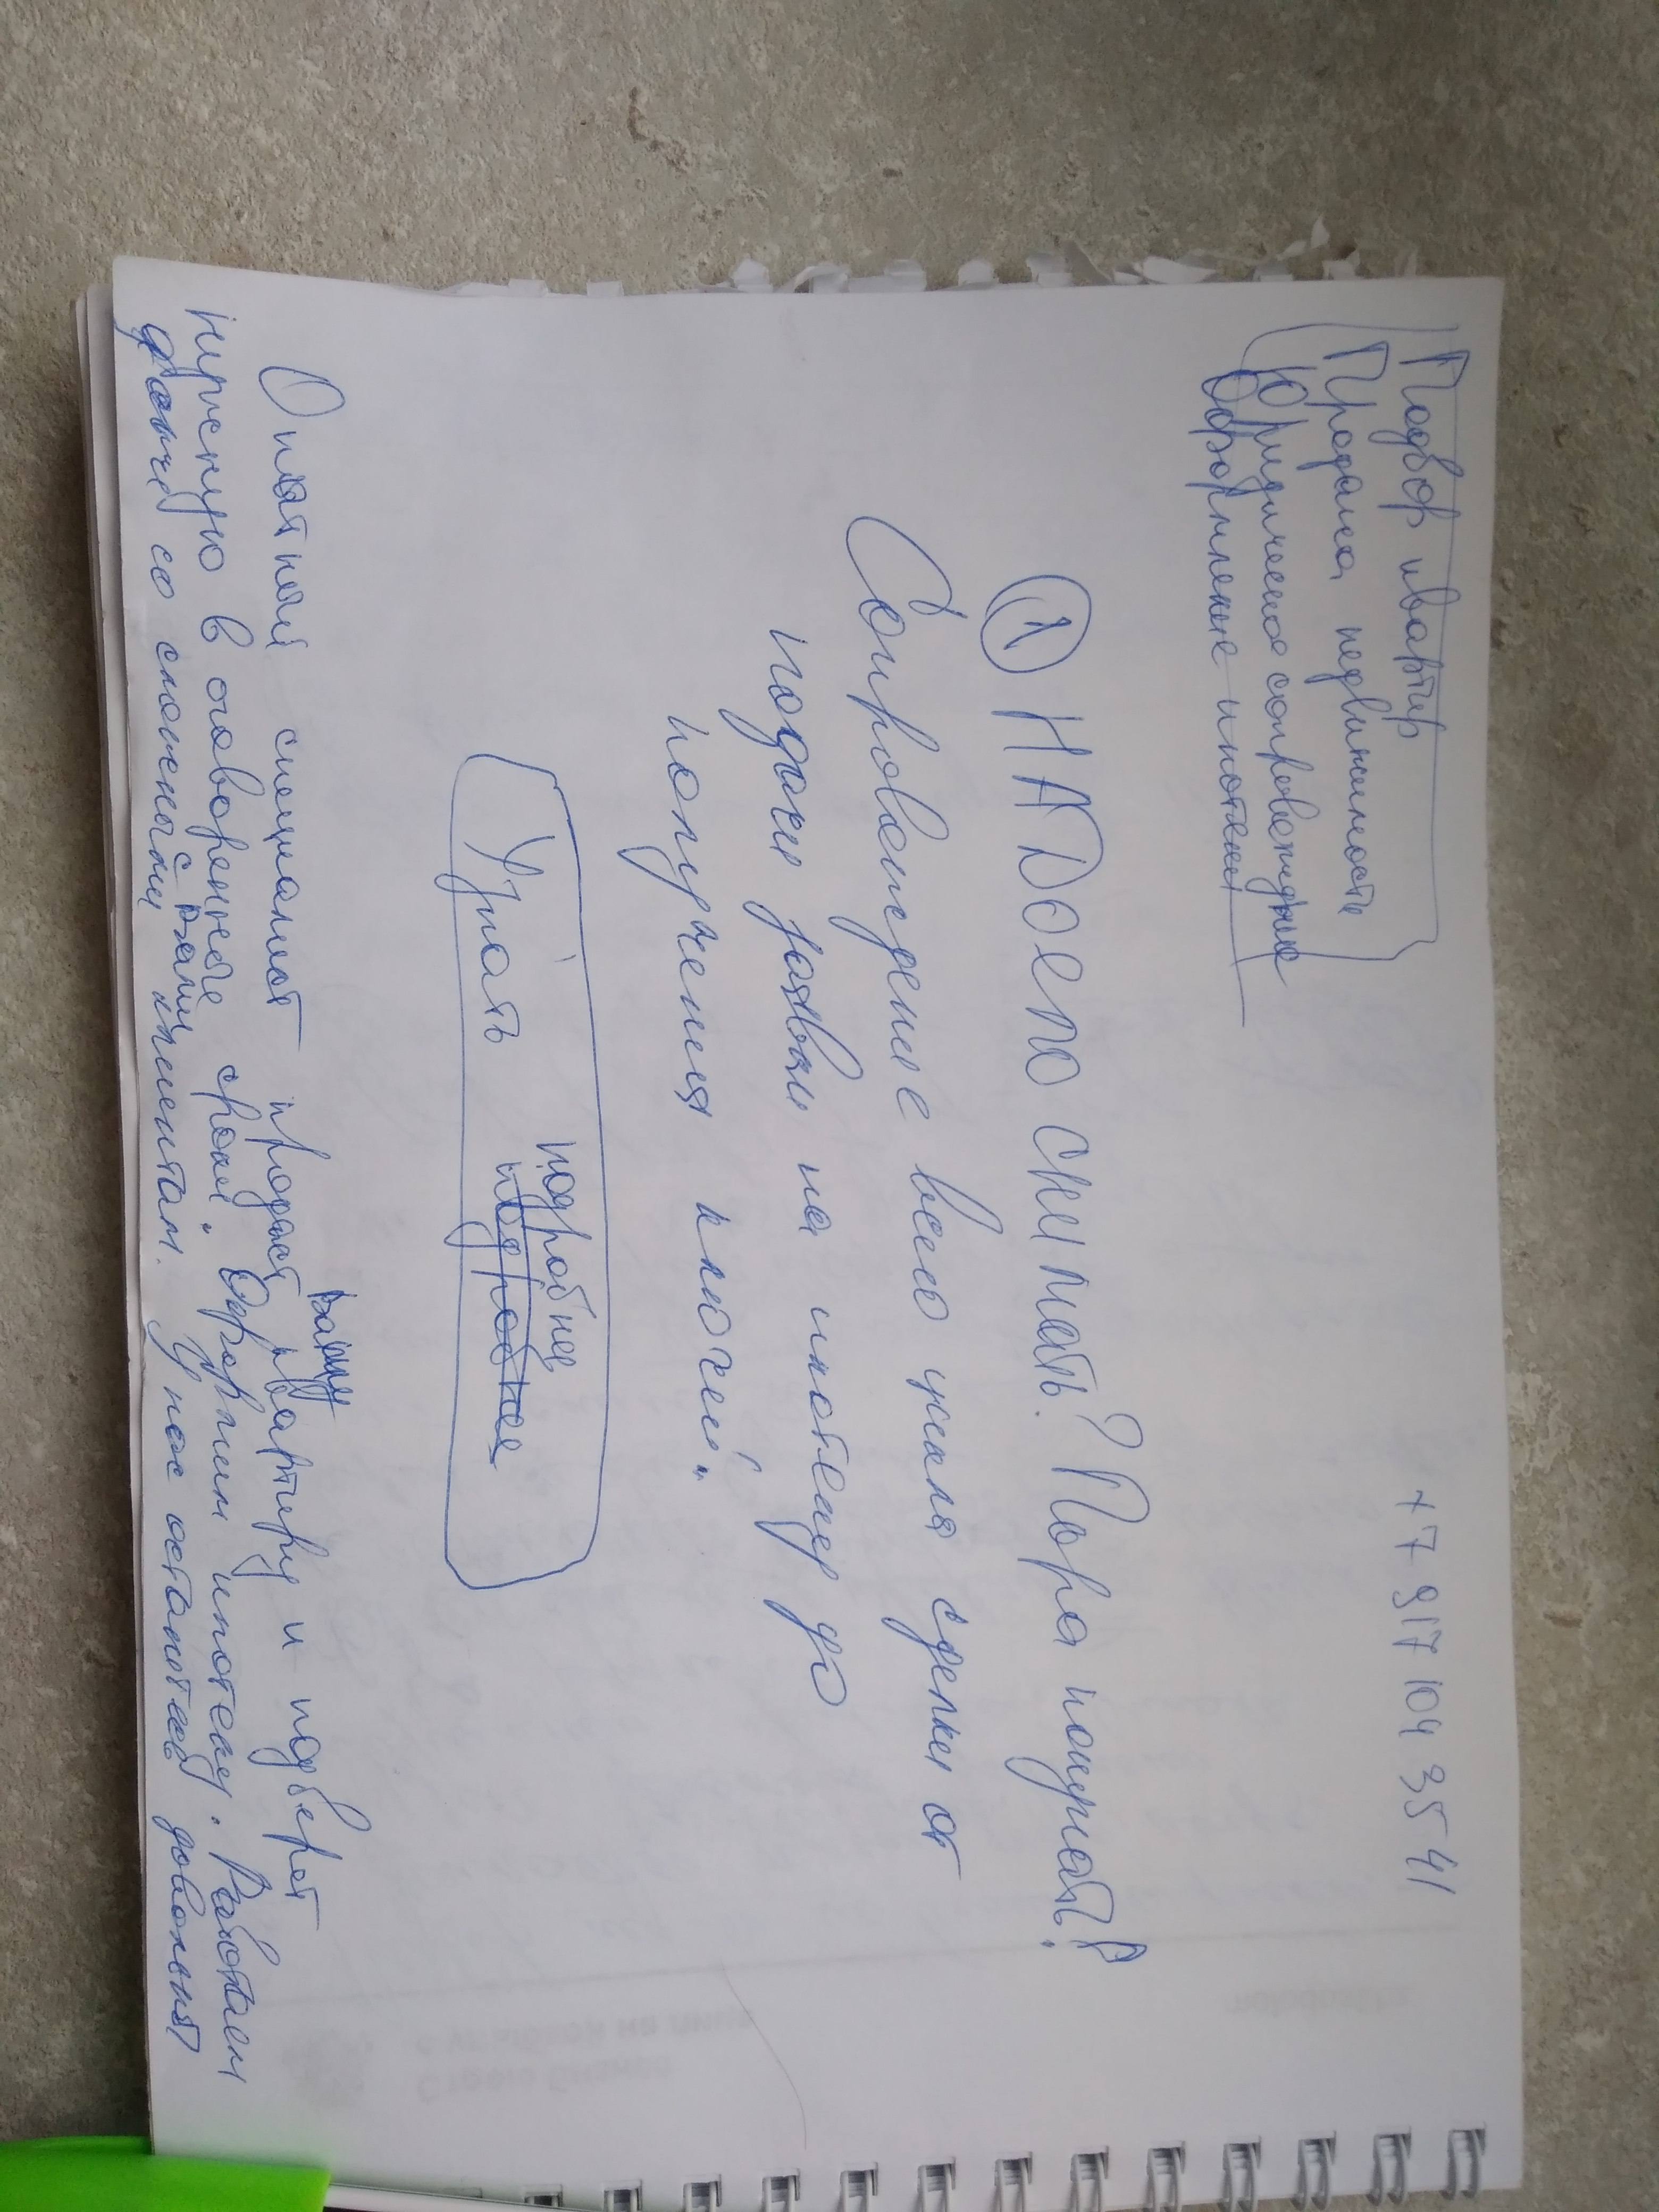 Подбор квартир
+7 917 104 35 41
Продажа недвижимости
Юридическое сопровождение
Оформление ипотеки
1 НАДоело снимать? Пора покупать!
Сопровождение всего цикла сделки от
подачи заявки на ипотеку до
получения ключей.
подробнее
Узнать подробнее
Вашу
Опытный специалист продаст квартиру и подберет
нужную в оговоренные сроки. Оформим ипотеку. Работаем
с Вами
даже со сложными клиентам. У нас останетесь довольны